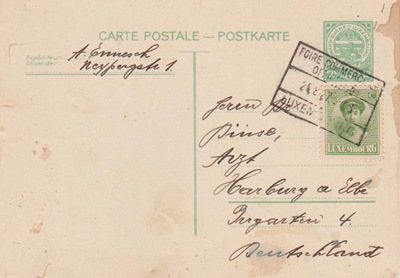 CARTE POSTALE — POSTKARTE
Expéditeur:
Absender:
A. Ennesch
Neypergstr 1
FOIRE COMMERC
LUXEM
LUXEMBOURG
Herrn Dr
Dinse,
Arzt
Harburg a Elbe
Irrgarten 4.
Deutschland